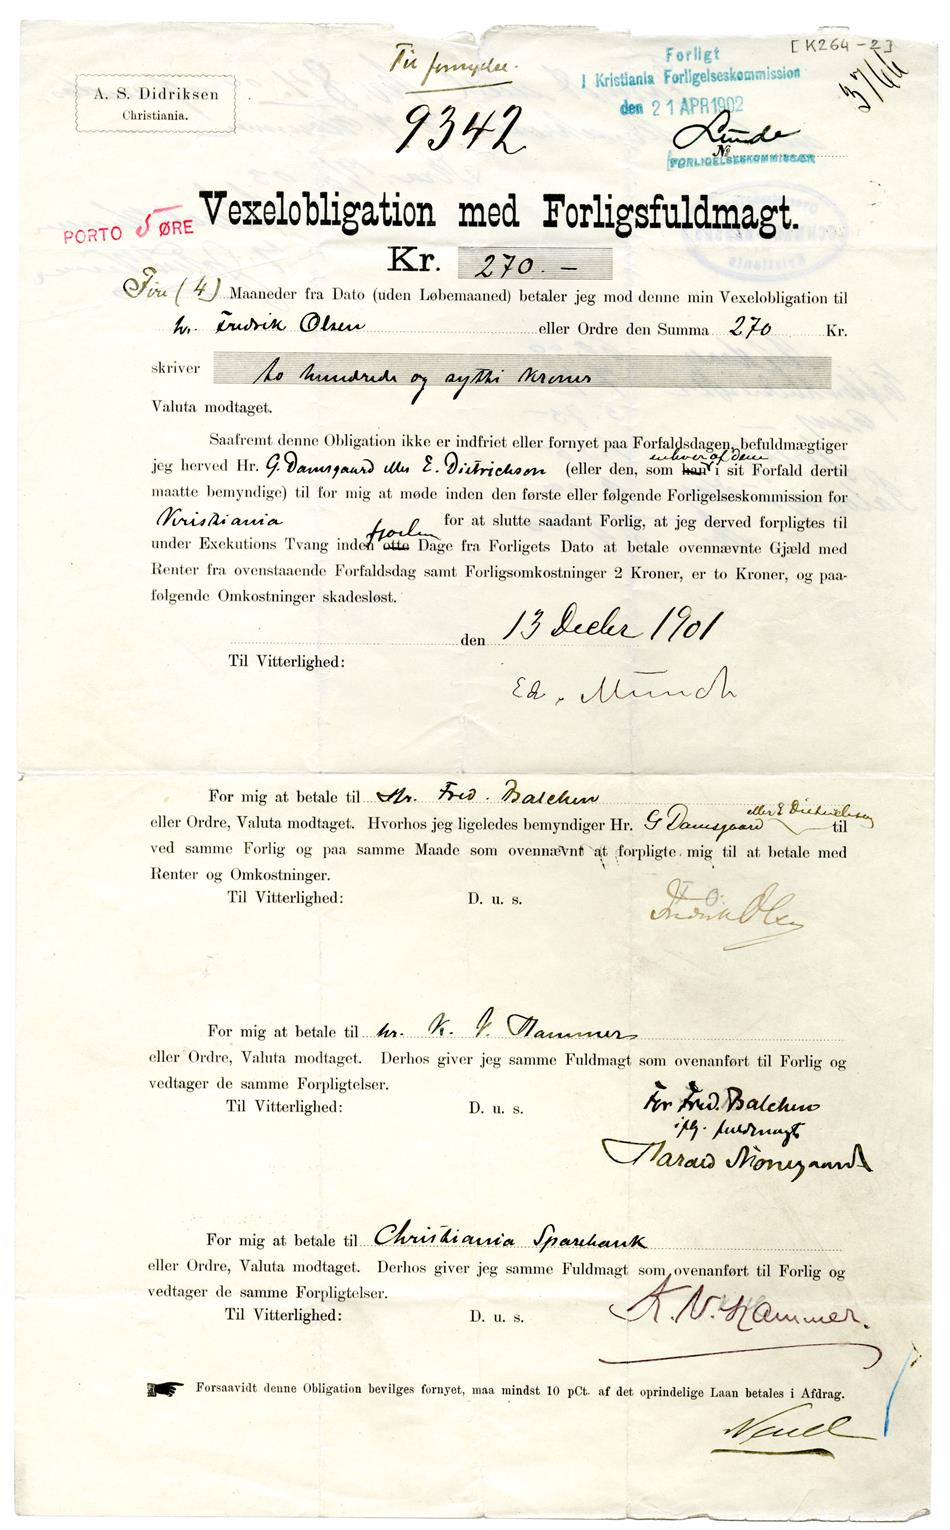 [K264-2]
Til fornyelse.
A. S. Didriksen
Christiania.
Forligt
I Kristiania Forligelseskommission
den 21 APR 1902
3766
9342
Lunde
No
FORLIGELSESKOMMISSÆR
Vexelobligation med Forligsfuldmagt.
PORTO 5 ØRE
Kr. 270.-
Fire (4) Maaneder fra Dato (uden Løbemaaned) betaler jeg mod denne min Vexelobligation til
hr. Fredrik Olsen eller Ordre den Summa 270 Kr.
skriver to hundrede og sytti Kroner
Valuta modtaget.
Saafremt denne Obligation ikke er indfriet eller fornyet paa Forfaldsdagen, befuldmægtiger
enhver af dem
jeg herved Hr. G. Damsgaard eller E. Dietrichson (eller den, som han i sit Forfald dertil
maatte bemyndige) til for mig at møde inden den første eller følgende Forligelseskommission for
Kristiania for at slutte saadant Forlig, at jeg derved forpligtes til
fjorten
under Exekutions Tvang inden otte Dage fra Forligets Dato at betale ovennævnte Gjæld med
Renter fra ovenstaaende Forfaldsdag samt Forligsomkostninger 2 Kroner, er to Kroner, og paa-
følgende Omkostninger skadesløst.
den 13 Decbr 1901
Til Vitterlighed:
Ed. Munch
For mig at betale til Hr. Fred. Balchen
eller E Dietrichson
eller Ordre, Valuta modtaget. Hvorhos jeg ligeledes bemyndiger Hr. G Damsgaard til
ved samme Forlig og paa samme Maade som ovennævnt at forpligte mig til at betale med
Renter og Omkostninger.
Til Vitterlighed: D. u. s.
Fredrik Olsen
For mig at betale til hr. K. V. Hammer
eller Ordre, Valuta modtaget. Derhos giver jeg samme Fuldmagt som ovenanført til Forlig og
vedtager de samme Forpligtelser.
Til Vitterlighed: D. u. s. For Fred. Balchen
iflg. fuldmagt
Harald Nørregaard
For mig at betale til Christiania Sparebank
eller Ordre, Valuta modtaget. Derhos giver jeg samme Fuldmagt som ovenanført til Forlig og
vedtager de samme Forpligtelser.
Til Vitterlighed: D. u. s. K. V. Hammer.
Forsaavidt denne Obligation bevilges fornyet, maa mindst 10 pCt. af det oprindelige Laan betales i Afdrag.